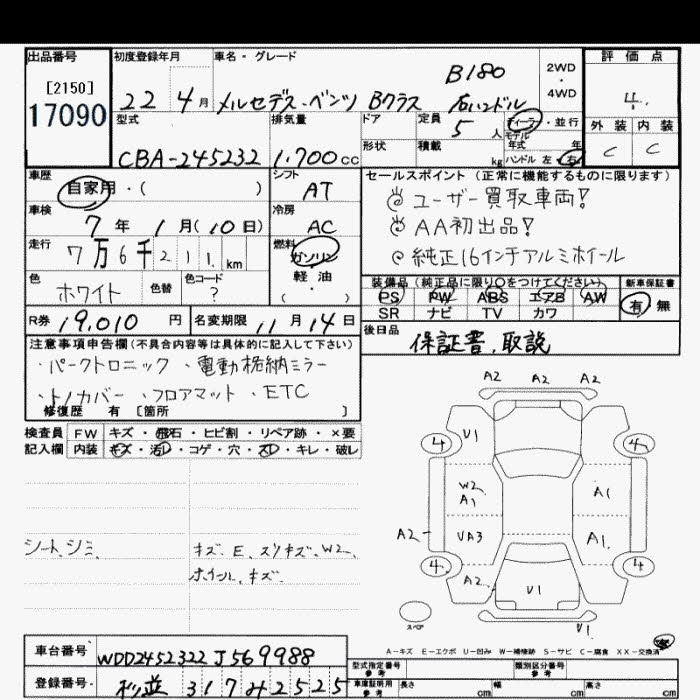 出品番号 初度登録年月 車名・グレード 評価点
[2150] B180 2WD・4WD
17090 22 4月 メルセデス・ベンツ Bクラス 右ハンドル 4.
型式 排気量 ドア 定員 5人 ディーラー・並行 外装 内装
モデル年式 年
CBA-245232 1.700cc 形状 積載 kg ハンドル 左・右 C C
車歴 シフト セールスポイント (正常に機能するものに限ります)
自家用・( ) AT ユーザー買取車両!
車検 冷房
7年 1月(10日) AC AA初出品!
走行 燃料
7万6千211km ガソリン 純正16インチアルミホイール
軽油
色 色替 色コード ( ) 装備品 (純正品に限り○をつけてください) 新車保証書
ホワイト ? PS PW ABS エアB AW 有 無
SR ナビ TV カワ
R券 19,010円 名変期限 11月14日 後日品
保証書,取説
注意事項申告欄(不具合内容等は具体的に記入して下さい)
・パークトロニック ・電動格納ミラー
・トノカバー ・フロアマット ・ETC
修復歴 有 [箇所 ]
検査員 FW キズ・飛石・ヒビ割・リペア跡・×要
記入欄 内装 キズ・汚レ・コゲ・穴・スレ・キレ・破レ
A2 A2 A2
4 U1 4
W2 A1 A1
A2 UA3 A1
4 A2 U1 4
スペア U1
シート、シミ キズ、E、スリキズ、W2
ホイール、キズ
A-キズ E-エクボ U-凹み W-補修跡 S-サビ C-腐食 XX-交換済
車台番号 WDD2452322J569988
型式指定番号 参考 類別区分番号 参考
登録番号 317 2525
車庫証明用 参考 長さ cm 幅 cm 高さ cm